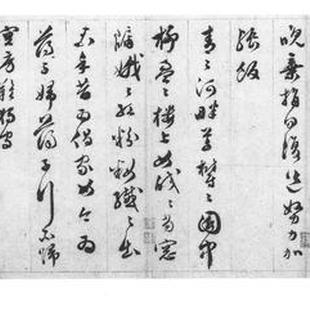 晚棄捐勿復道努力加
餐飯
青〻河畔草鬱〻園中
柳盈〻樓上女皎〻當窓
牖娥〻紅粉妝纖〻出
素手昔為倡家女今為
蕩子婦蕩子行不歸
空房難獨守